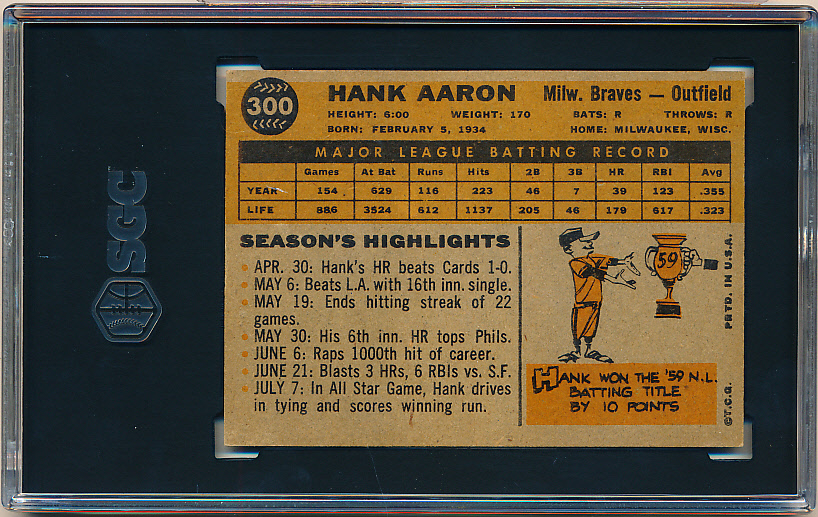 SGC
300
HANK AARON Milw. Braves — Outfield
HEIGHT: 6:00 WEIGHT: 170 BATS: R THROWS: R
BORN: FEBRUARY 5, 1934 HOME: MILWAUKEE, WISC.
MAJOR LEAGUE BATTING RECORD
Games At Bat Runs Hits 2B 3B HR RBI Avg
YEAR 154 629 116 223 46 7 39 123 .355
LIFE 886 3524 612 1137 205 46 179 617 .323
SEASON'S HIGHLIGHTS
APR. 30: Hank's HR beats Cards 1-0.
MAY 6: Beats L.A. with 16th inn. single.
MAY 19: Ends hitting streak of 22
games.
MAY 30: His 6th inn. HR tops Phils.
JUNE 6: Raps 1000th hit of career.
JUNE 21: Blasts 3 HRs, 6 RBIs vs. S.F.
JULY 7: In All Star Game, Hank drives
in tying and scores winning run.
59
HANK WON THE '59 N.L.
BATTING TITLE
BY 10 POINTS
©T.C.G. PRTD. IN U.S.A.